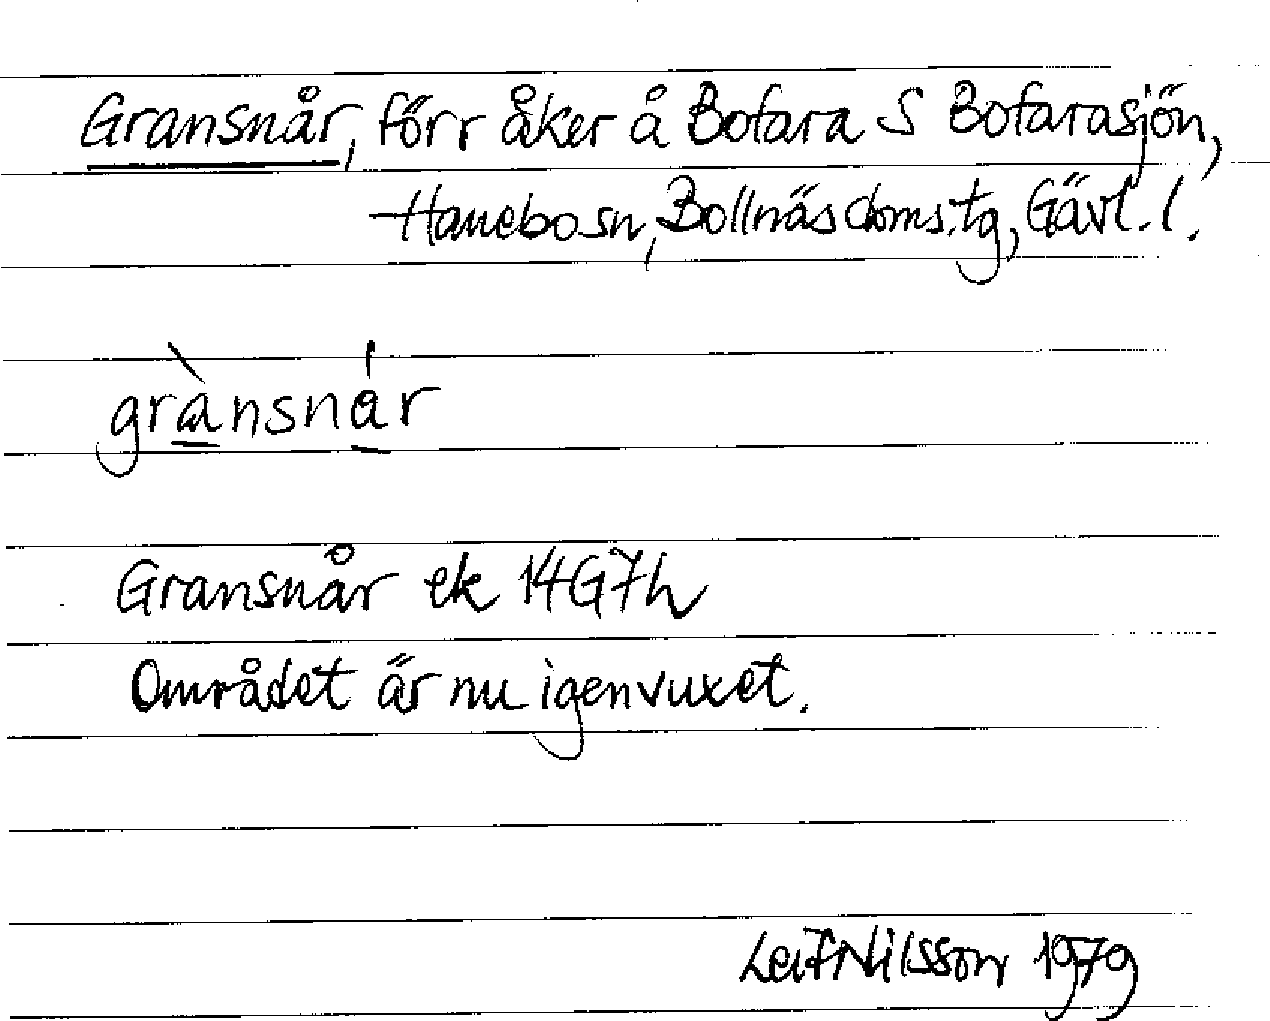 Gransnår, förr åker å Bofara S Bofarasjön,
Hanebosn, Bollnäs doms.tg, Gävl. l.
grànsnár
Gransnår ek 14G7h
Området är nu igenvuxet.
Leif Nilsson 1979